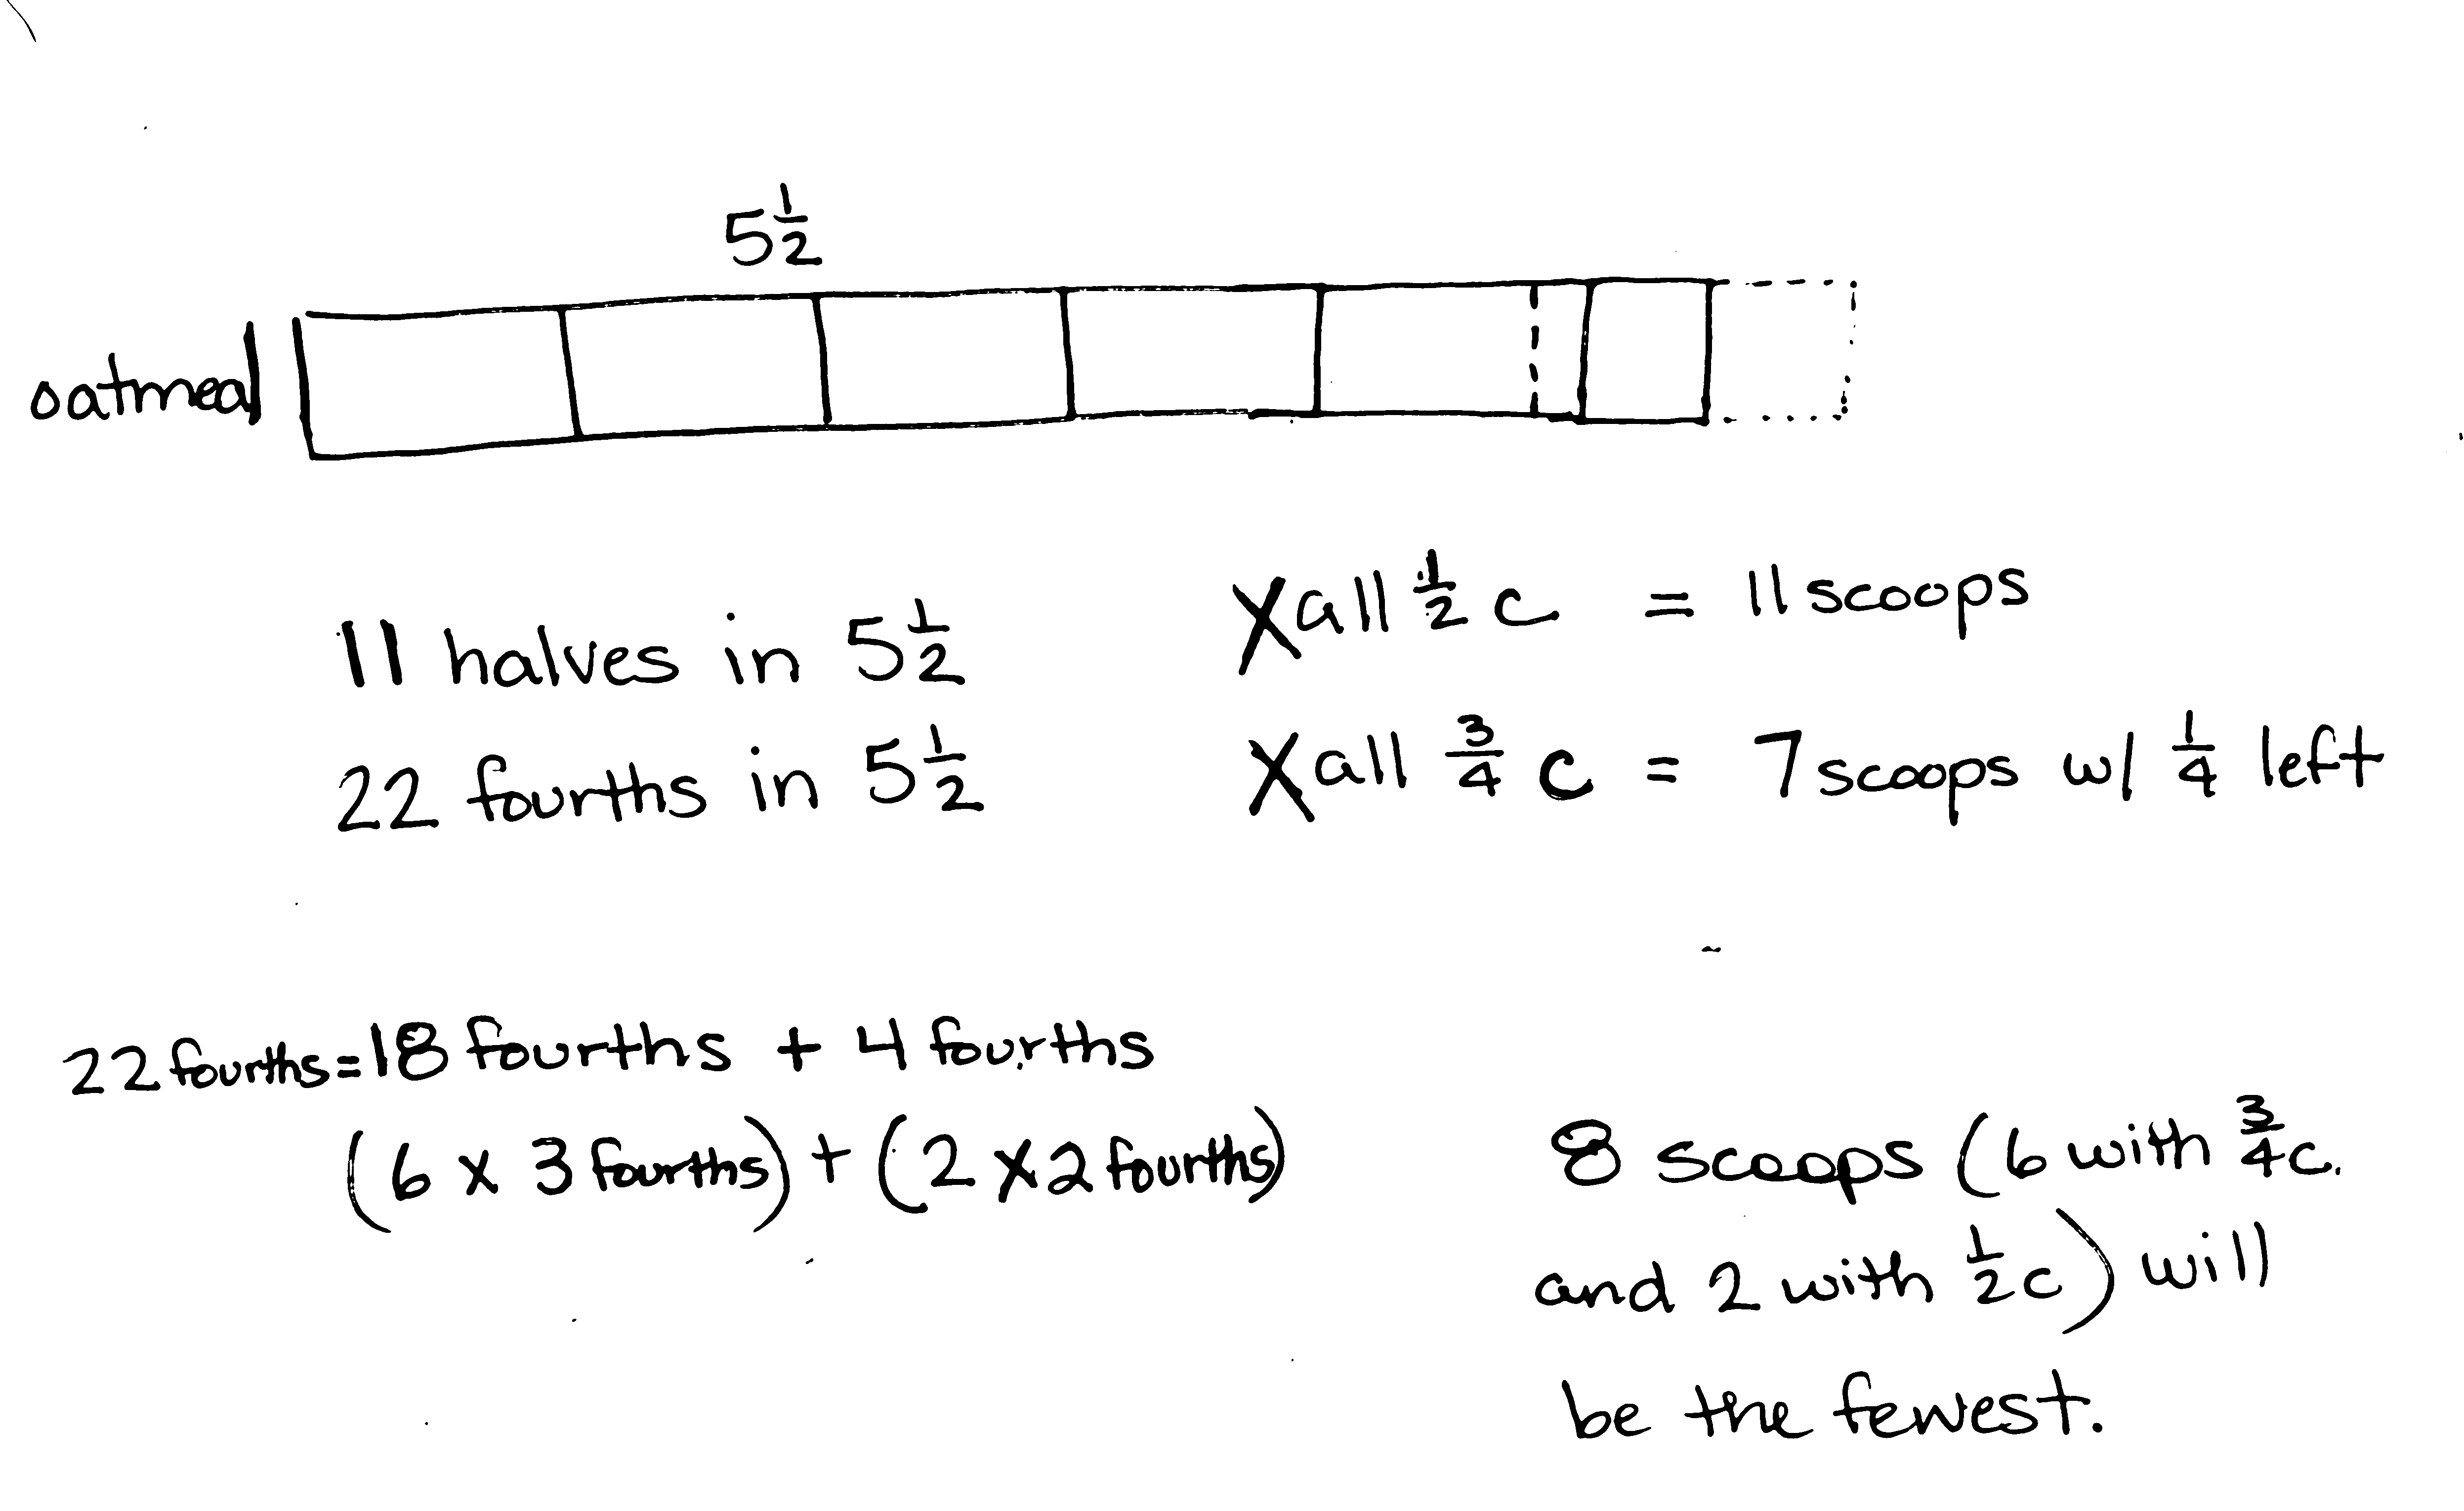 5 1/2
oatmeal
11 halves in 5 1/2
X all 1/2 c = 11 scoops
22 fourths in 5 1/2
X all 3/4 c = 7 scoops w/ 1/4 left
22 fourths = 18 fourths + 4 fourths
(6 x 3 fourths) + (2 x 2 fourths)
8 scoops (6 with 3/4 c.
and 2 with 1/2 c) will
be the fewest.